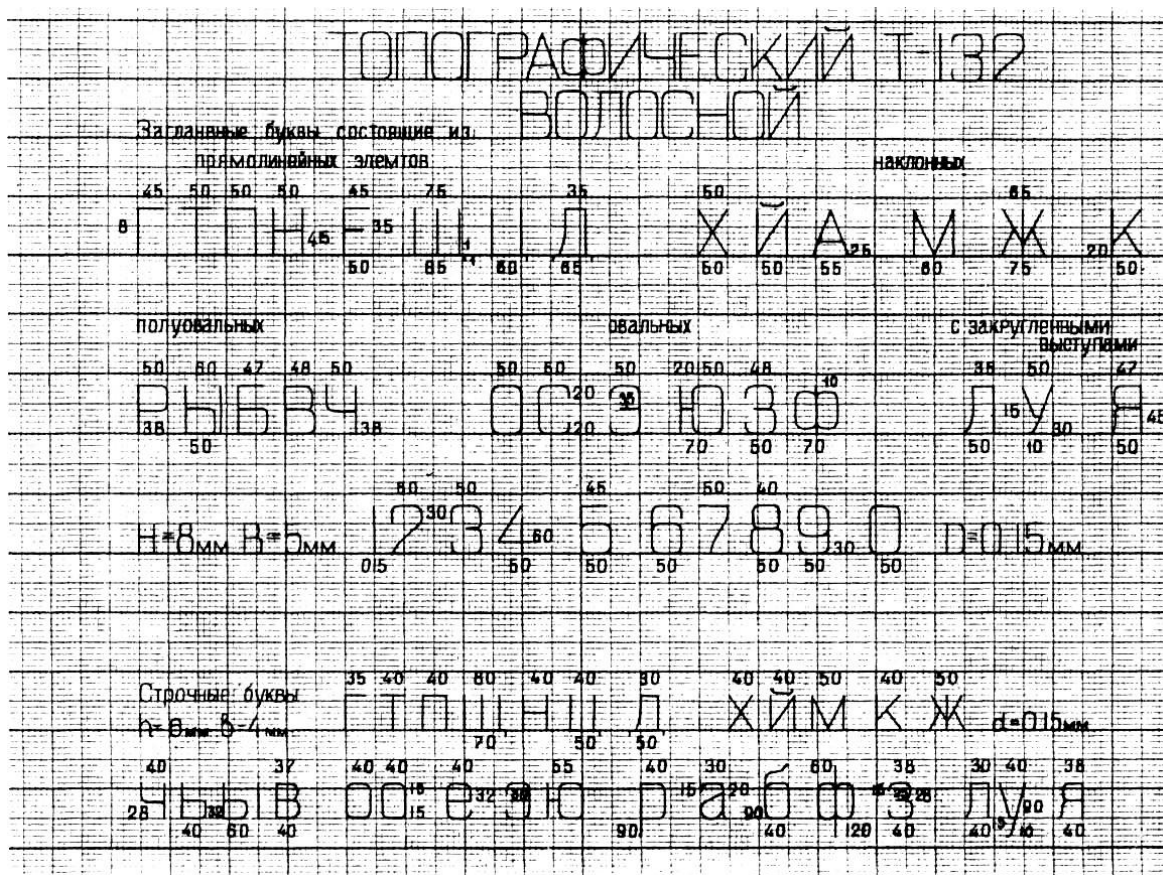 ТОПОГРАФИЧЕСКИЙ Т-132
ВОЛОСНОЙ
Заглавные буквы состоящие из:
прямолинейных элемтов наклонных
45 50 50 50 45 75 35 50 65
8 Г Т П Н 45 Е 35 Ш Щ Ц Л Х Й А 25 М Ж 20 К
50 85 60 65 50 50 55 60 75 50
полуовальных овальных с закругленными
выступами
50 60 47 48 50 50 60 50 20 50 48 10 38 50 47
Р Ы Б В Ч О С 20 Э Ю З Ф Л 15 У Я 45
38 50 38 20 70 50 70 50 10 30 50
60 50 45 50 40
H=8мм В=5мм 1 2 30 3 4 60 5 6 7 8 9 30 0 h=0,15мм
015 50 50 50 50 50 50
35 40 40 60 40 40 30 40 40 50 40 50
Строчные буквы г т п щ н ц л х й м к ж
h=6мм б=4мм 70 50 50 d=015мм
40 37 40 40 40 55 40 30 60 38 30 40 38
28 ч ы в о с 15 15 е 32 э ю р 15 а 20 90 б ф з 28 л у 90 я
40 60 40 90 40 120 40 40 10 40